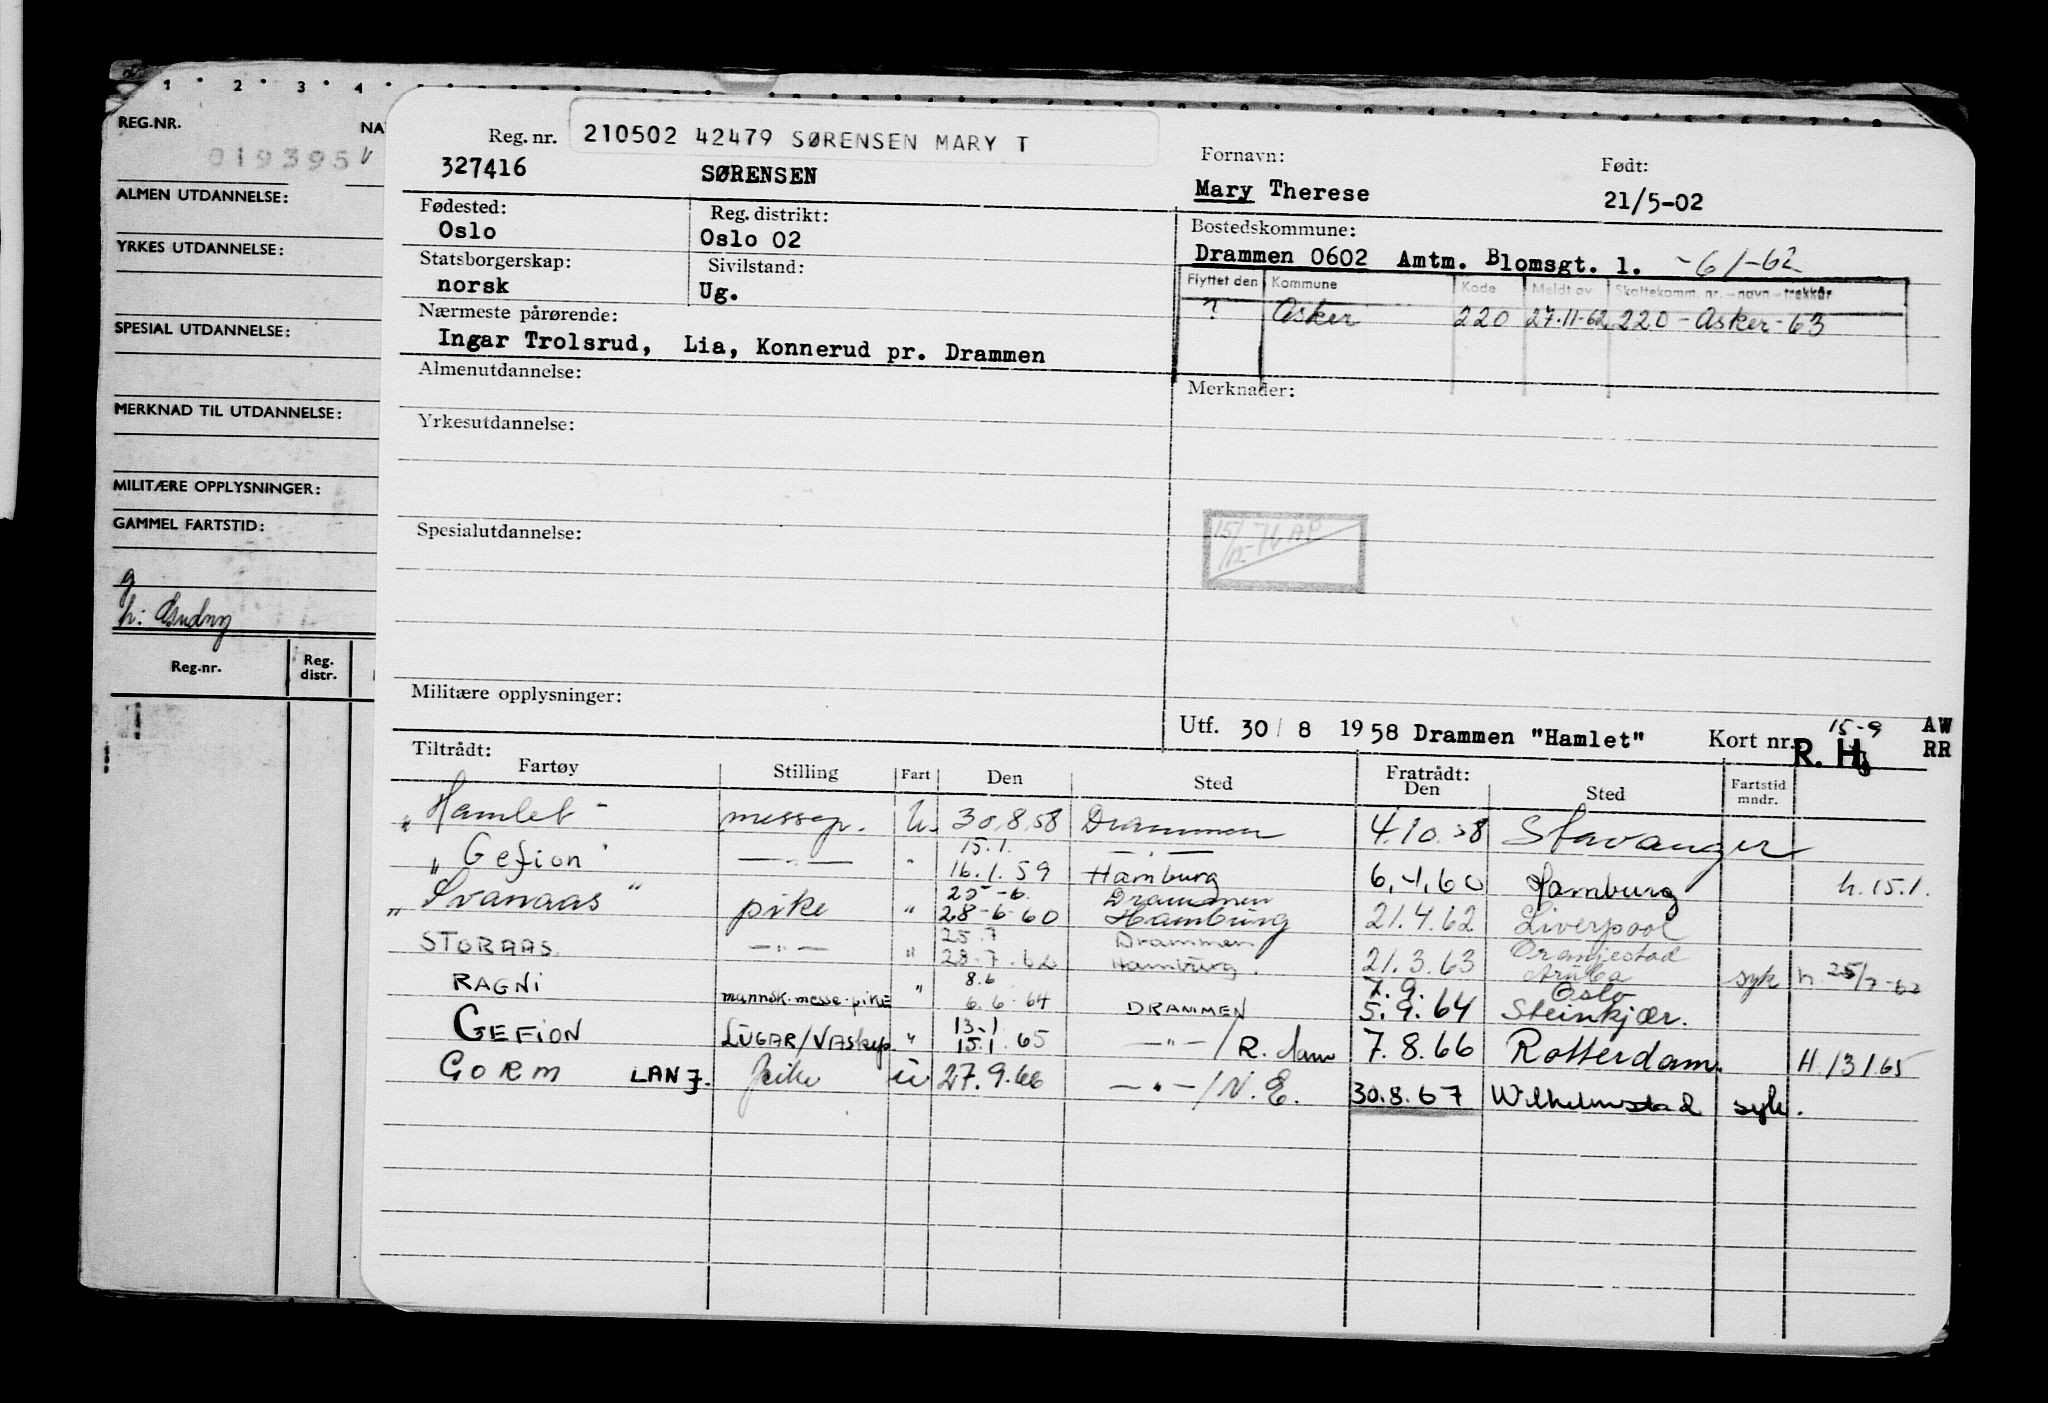 1 2 3 4
REG.NR.
NA
019395
ALMEN UTDANNELSE:
YRKES UTDANNELSE:
SPESIAL UTDANNELSE:
MERKNAD TIL UTDANNELSE:
MILITÆRE OPPLYSNINGER:
GAMMEL FARTSTID:
g
Reg.nr. Reg. distr.
Reg. nr. 210502 42479 SØRENSEN MARY T
327416 SØRENSEN
Fornavn: Født:
Mary Therese 21/5-02
Fødested: Reg. distrikt: Bostedskommune:
Oslo Oslo 02 Drammen 0602 Amtm. Blomsgt. 1. - 6/1-62
Statsborgerskap: Sivilstand:
norsk Ug.
Flyttet den Kommune Kode Meldt av Skattekomm. nr. - navn - trekkår
? Asker 220 27.11-62 220 - Asker - 63
Nærmeste pårørende:
Ingar Trolsrud, Lia, Konnerud pr. Drammen
Almenutdannelse: Merknader:
Yrkesutdannelse:
Spesialutdannelse:
15/12-76 AP
Militære opplysninger:
Utf. 30/ 8 1958 Drammen "Hamlet" Kort nr. 15-9 R. H. AW RR
Tiltrådt: Fratrådt:
Fartøy Stilling Fart Den Sted Den Sted Fartstid mndr.
"Hamlet" messep. u. 30.8.58 Drammen 4.10.58 Stavanger
15.1. — " —
"Gefion" — " — " 16.1.59 Hamburg 6.1.60 Hamburg h. 15.1.
25-6. Drammen
"Svanaas" pike " 28-6-60 Hamburg 21.4.62 Liverpool
25.7 Drammen Oranjestad
STORAAS. — " — " 28.7.62 Hamburg. 21.3.63 Aruba syk h. 25/7-62
8.6 7.9. Oslo
RAGNI mannsk.messe-pike " 6.6.64 DRAMMEN 5.9.64 Steinkjær.
13-1
GEFION LUGAR/VASkep. " 15.1.65 — " — / R.dam 7.8.66 Rotterdam. H. 13/1.65
GORM LANJ. pike u 27.9.66 — " — / N.E. 30.8.67 Wilhelmstad syk.